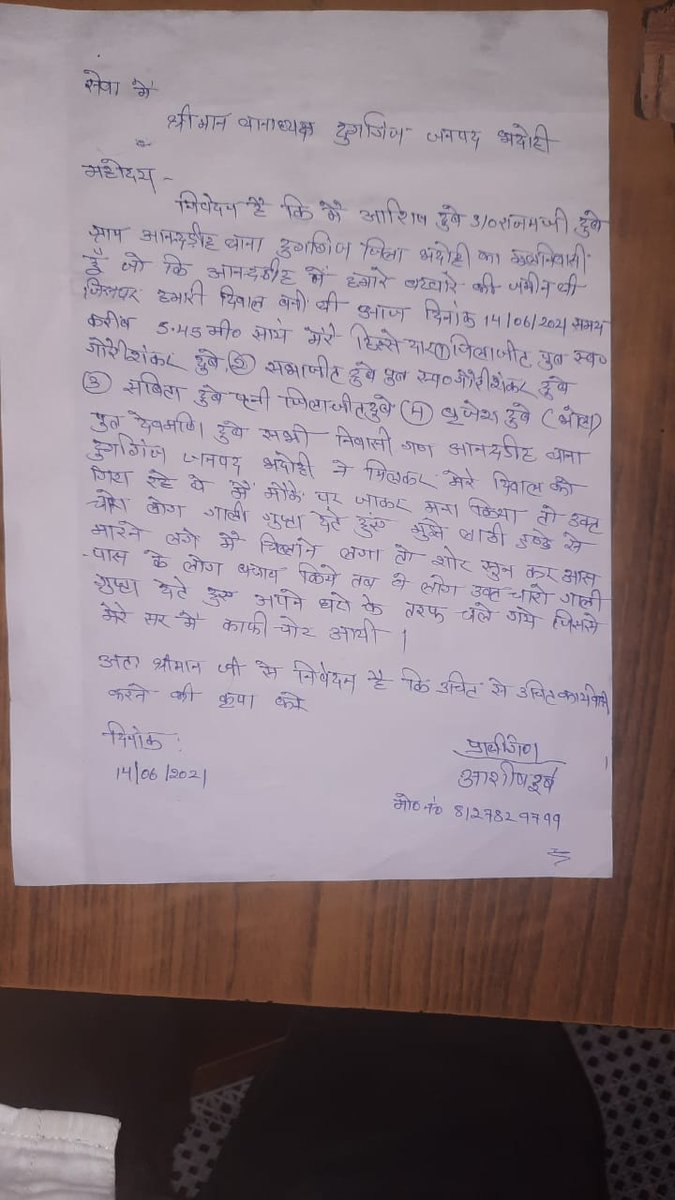 सेवा में
श्रीमान थानाध्यक्ष दुर्गागंज जनपद भदोही
महोदय -
निवेदन है कि मै आशिष दुबे S/O राजमजी दुबे
ग्राम आनन्दडीह थाना दुर्गागंज जिला भदोही का मूलनिवासी
हूँ जो कि आनन्दडीह में हमारे बटवारे की जमीन थी
जिसपर हमारी दिवाल बनी थी आज दिनांक 14/06/2021 समय
करीब 5.45 मी० सायं मेरे हिस्सेदार ① जिलाजीत पुत्र स्व०
गौरीशंकर दुबे, ② सभाजीत दुबे पुत्र स्व० गौरीशंकर दुबे
③ सबिता दुबे पत्नी जिलाजीत दुबे ④ बृजेश दुबे (भोला)
पुत्र देवमणि दुबे सभी निवासी गण आनन्दडीह थाना
दुर्गागंज जनपद भदोही ने मिलकर मेरे दिवाल को
गिरा रहे थे मैं मौके पर जाकर मना किया तो उक्त
चारो लोग गाली गुप्ता देते हुए मुझे लाठी डण्डे से
मारने लगे मै चिल्लाने लगा तो शोर सुन कर आस
पास के लोग बचाव किये तब वे लोग उक्त चारो गाली
गुप्ता देते हुए अपने घरो के तरफ चले गये जिससे
मेरे सर मे काफी चोट आयी ।
अतः श्रीमान जी से निवेदन है कि उचित से उचित कार्यवाही
करने की कृपा करे
दिनांक :
14/06/2021
प्रार्थीगण
आशीष दुबे
मो० नं०